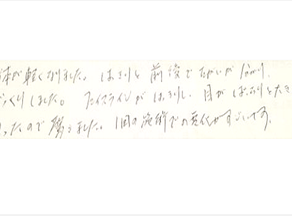 体が軽くなりました。はっきりと前後でちがいが分かり、
びっくりしました。フェイスラインがはっきりし、目がぱっちりとした
ったので驚きました。1回の施術での変化がすごいです。